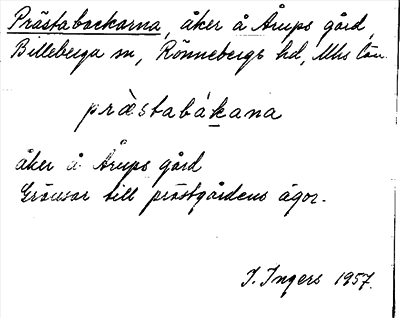 Prästabackarna, åker å Årups gård,
Billeberga sn, Rönnebergs hd, Mhs län.
præ̀stabákana
åker å Årups gård
Gränsar till prästgårdens ägor.
I. Ingers 1957.